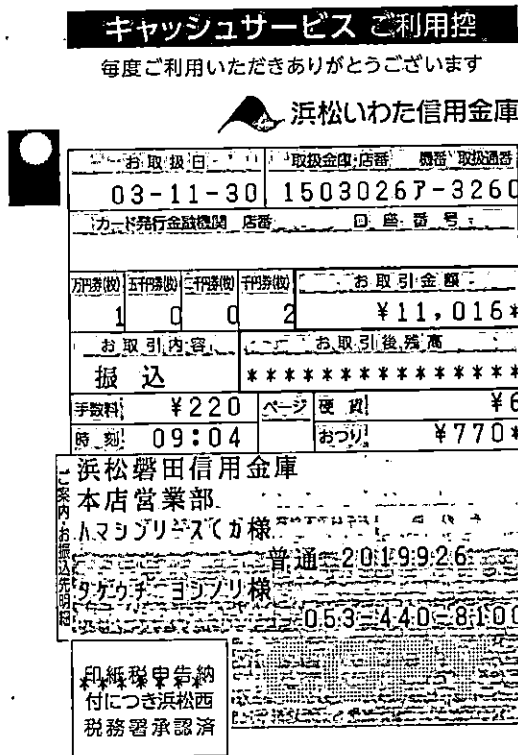 キャッシュサービス ご利用控
毎度ご利用いただきありがとうございます
浜松いわた信用金庫
お取扱日 取扱金庫・店番 機番 取扱通番
03-11-30 1503026ア-3260
カード発行金融機関 店番 口座番号
万円券(枚) 五千円券(枚) 二千円券(枚) 千円券(枚) お取引金額
1 0 0 2 ¥11,016*
お取引内容 お取引後残高
振込 ***************
手数料 ¥220 ページ 硬貨 ¥6
時刻 09:04 おつり ¥770*
ご案内・お振込先明細
浜松磐田信用金庫
本店営業部
ハマシンリース(カ様
普通 2019926
タケウチ ヨシノリ様
053-440-8100
印紙税申告納
*******
付につき浜松西
税務署承認済